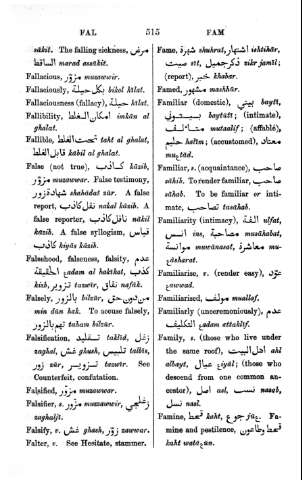 FAL 515 FAM
sâkit. The falling sickness, مرض
الساقط marad assâkit.
Fallacious, مزوّر muzawwir.
Fallaciously, بكل حيلة bikol hîlat.
Fallaciousness (fallacy), حيلة hîlat.
Fallibility, امكان الغلط imkân al
ghalat.
Fallible, تحت الغلط taht al ghalat,
قابل الغلط kâbil al ghalat.
False (not true), كاذب kâzib,
مزوّر muzawwar. False testimony,
شهادة زور shahâdat zûr. A false
report, نقل كاذب nakal kâzib. A
false reporter, ناقل كاذب nâkil
kâzib. A false syllogism, قياس
كاذب kiyâs kâzib.
Falsehood, falseness, falsity, عدم
الحقيقة ع‍adam al hakîkat, كذب
kizb, تزوير tazwîr, نفاق nafâk.
Falsely, بالزور bilzûr, من دون حق
min dûn hak. To accuse falsely,
تهم بالزور taham bilzûr.
Falsification, تقليد taklîd, زغل
zaghal, غش ghush, تلبيس talbîs,
زور zûr, تزوير tazwîr. See
Counterfeit, confutation.
Falsified, مزوّر muzawwar.
Falsifier, s. مزوّر muzawwir, زغلجي
zaghaljî.
Falsify, v. غش ghash, زوّر zawwar.
Falter, v. See Hesitate, stammer.
Fame, شهرة shuhrat, اشتهار ishtihâr,
صيت sît, ذكر جميل zikr jamîl;
(report), خبر khabar.
Famed, مشهور mashhûr.
Familiar (domestic), بيتي baytî,
بيتوتي baytûtî; (intimate),
متالف mutaalif; (affable),
حليم halîm; (accustomed), معتاد
muع‍tâd.
Familiar, s. (acquaintance), صاحب
sâhib. To render familiar, صاحب
sâhab. To be familiar or inti-
mate, تصاحب tasâhab.
Familiarity (intimacy), الفة ulfat,
انس ins, مصاحبة musâhabat,
موانسة muwânasat, معاشرة mu-
ع‍âsharat.
Familiarise, v. (render easy), عوّد
ع‍awwad.
Familiarised, مولف muallaf.
Familiarly (unceremoniously), عدم
التكليف ع‍adam attaklîf.
Family, s. (those who live under
the same roof), اهل البيت ahl
albayt, عيال ع‍iyâl; (those who
descend from one common an-
cestor), اصل asl, نسب nasab,
نسل nasl.
Famine, قحط kaht, جوع jûع‍. Fa-
mine and pestilence, قحط وطاعون
kaht wataع‍ûn.